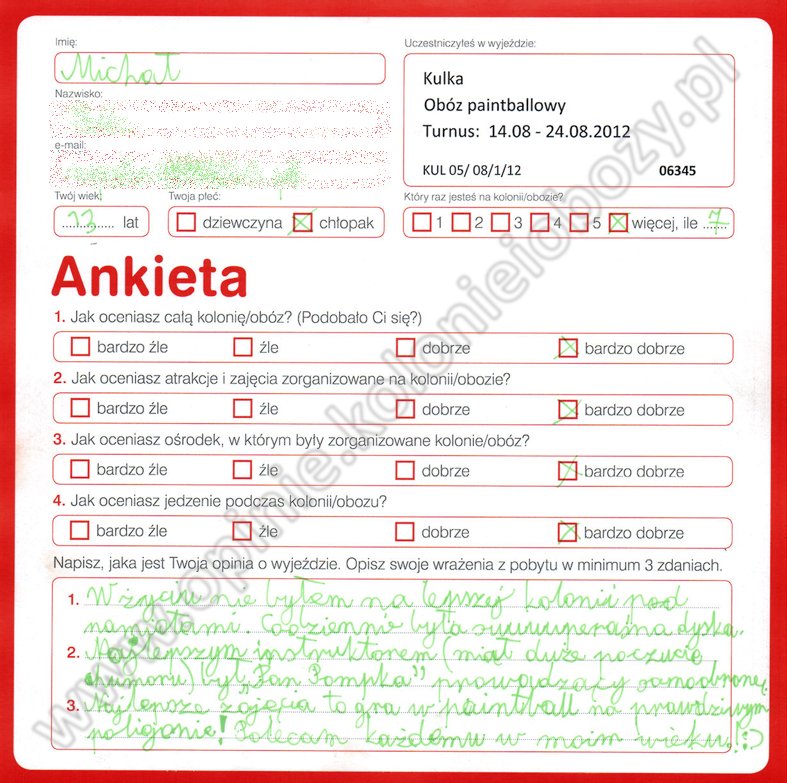 Imię:
Michał
Uczestniczyłeś w wyjeździe:
Kulka
Obóz paintballowy
Turnus: 14.08 - 24.08.2012
KUL 05/ 08/1/12 06345
Nazwisko:
e-mail:
Twój wiek:
13 lat
Twoja płeć:
dziewczyna chłopak
Który raz jesteś na kolonii/obozie?
1 2 3 4 5 więcej, ile 7
Ankieta
1. Jak oceniasz całą kolonię/obóz? (Podobało Ci się?)
bardzo źle źle dobrze bardzo dobrze
2. Jak oceniasz atrakcje i zajęcia zorganizowane na kolonii/obozie?
bardzo źle źle dobrze bardzo dobrze
3. Jak oceniasz ośrodek, w którym były zorganizowane kolonie/obóz?
bardzo źle źle dobrze bardzo dobrze
4. Jak oceniasz jedzenie podczas kolonii/obozu?
bardzo źle źle dobrze bardzo dobrze
Napisz, jaka jest Twoja opinia o wyjeździe. Opisz swoje wrażenia z pobytu w minimum 3 zdaniach.
1. W życiu nie byłem na lepszej kolonii pod
namiotami. Codziennie była suuuuperaśna dyska.
2. Najlepszym instruktorem (miał duże poczucie
humoru) był "Pan Pompka" prowadzący samoobronę.
3. Najlepsze zajęcia to gra w paintball na prawdziwym
poligonie! Polecam każdemu w moim wieku! :)
www.opinie.kolonieiobozy.pl